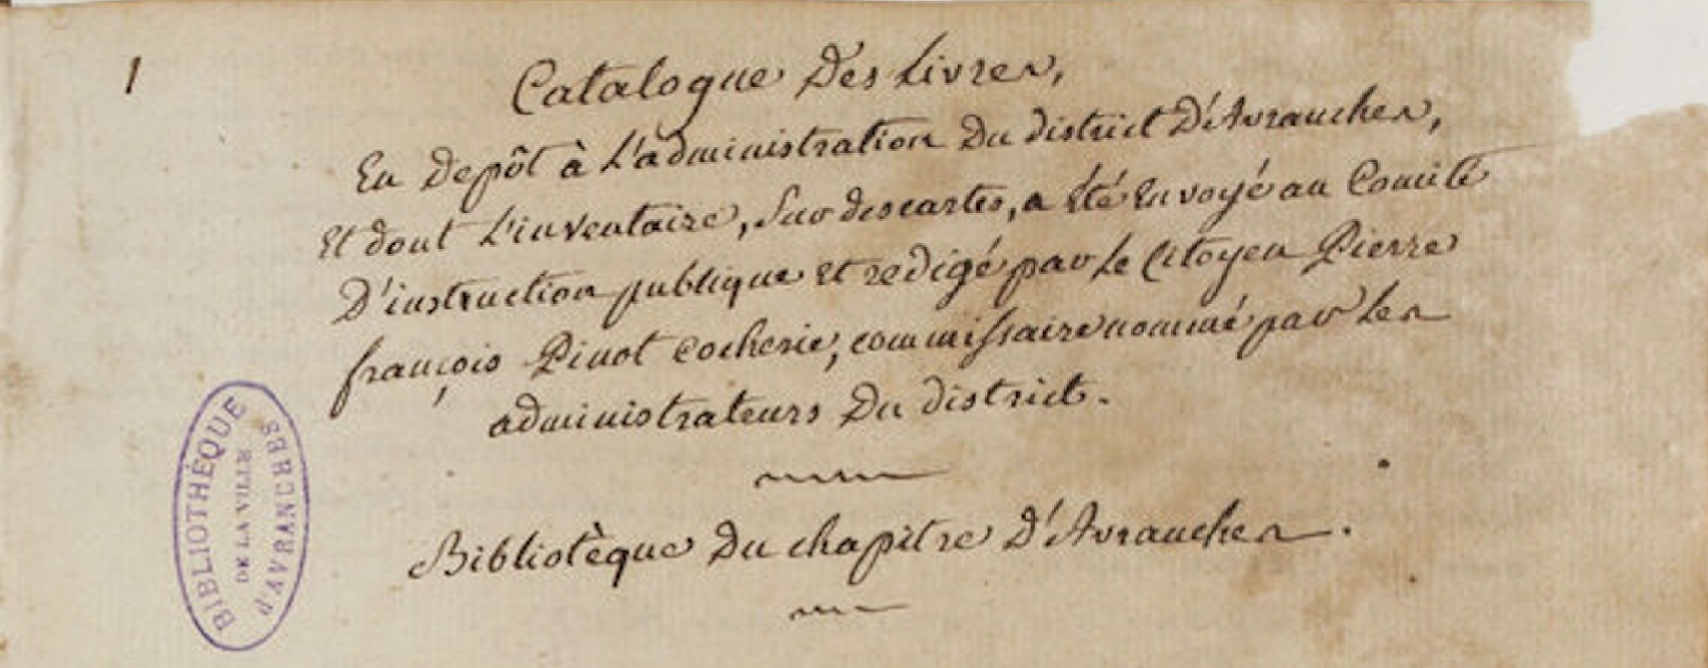 1
Catalogue Des Livres,
En Depôt à L'administration Du district D'Avranches,
Et dont L'inventaire, Sur des cartes, a été Envoyé au Comité
D'instruction publique Et redigé par Le Citoyen Pierre
françois Pinot Cocherie, commissaire nommé par Les
administrateurs Du district.
Bibliotèque Du chapitre D'Avranches.
BIBLIOTHÈQUE
DE LA VILLE
D'AVRANCHES